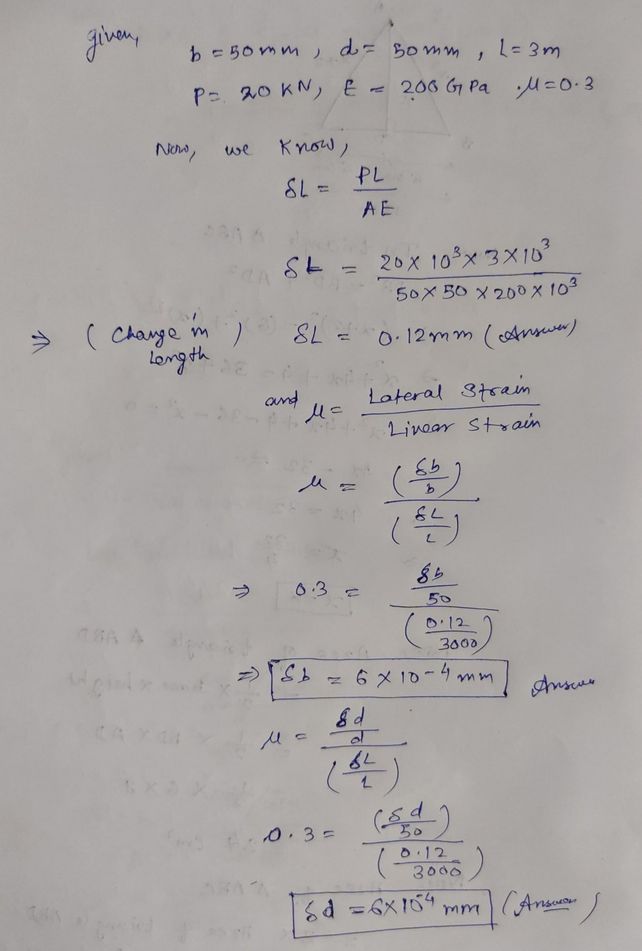 given,
b = 50mm , d = 50mm , L = 3m
P = 20 KN, E = 200 GPa μ = 0.3
Now, we know,
δL = PL / AE
δL = 20 × 10³ × 3 × 10³ / 50 × 50 × 200 × 10³
⇒ ( Change in Length ) δL = 0.12mm (Answer)
and μ = Lateral Strain / Linear Strain
μ = (δb/b) / (δL/L)
⇒ 0.3 = δb/50 / (0.12/3000)
⇒ δb = 6 × 10-4 mm Answer
μ = δd/d / (δL/L)
0.3 = (δd/50) / (0.12/3000)
δd = 6×10⁻⁴ mm (Answer)